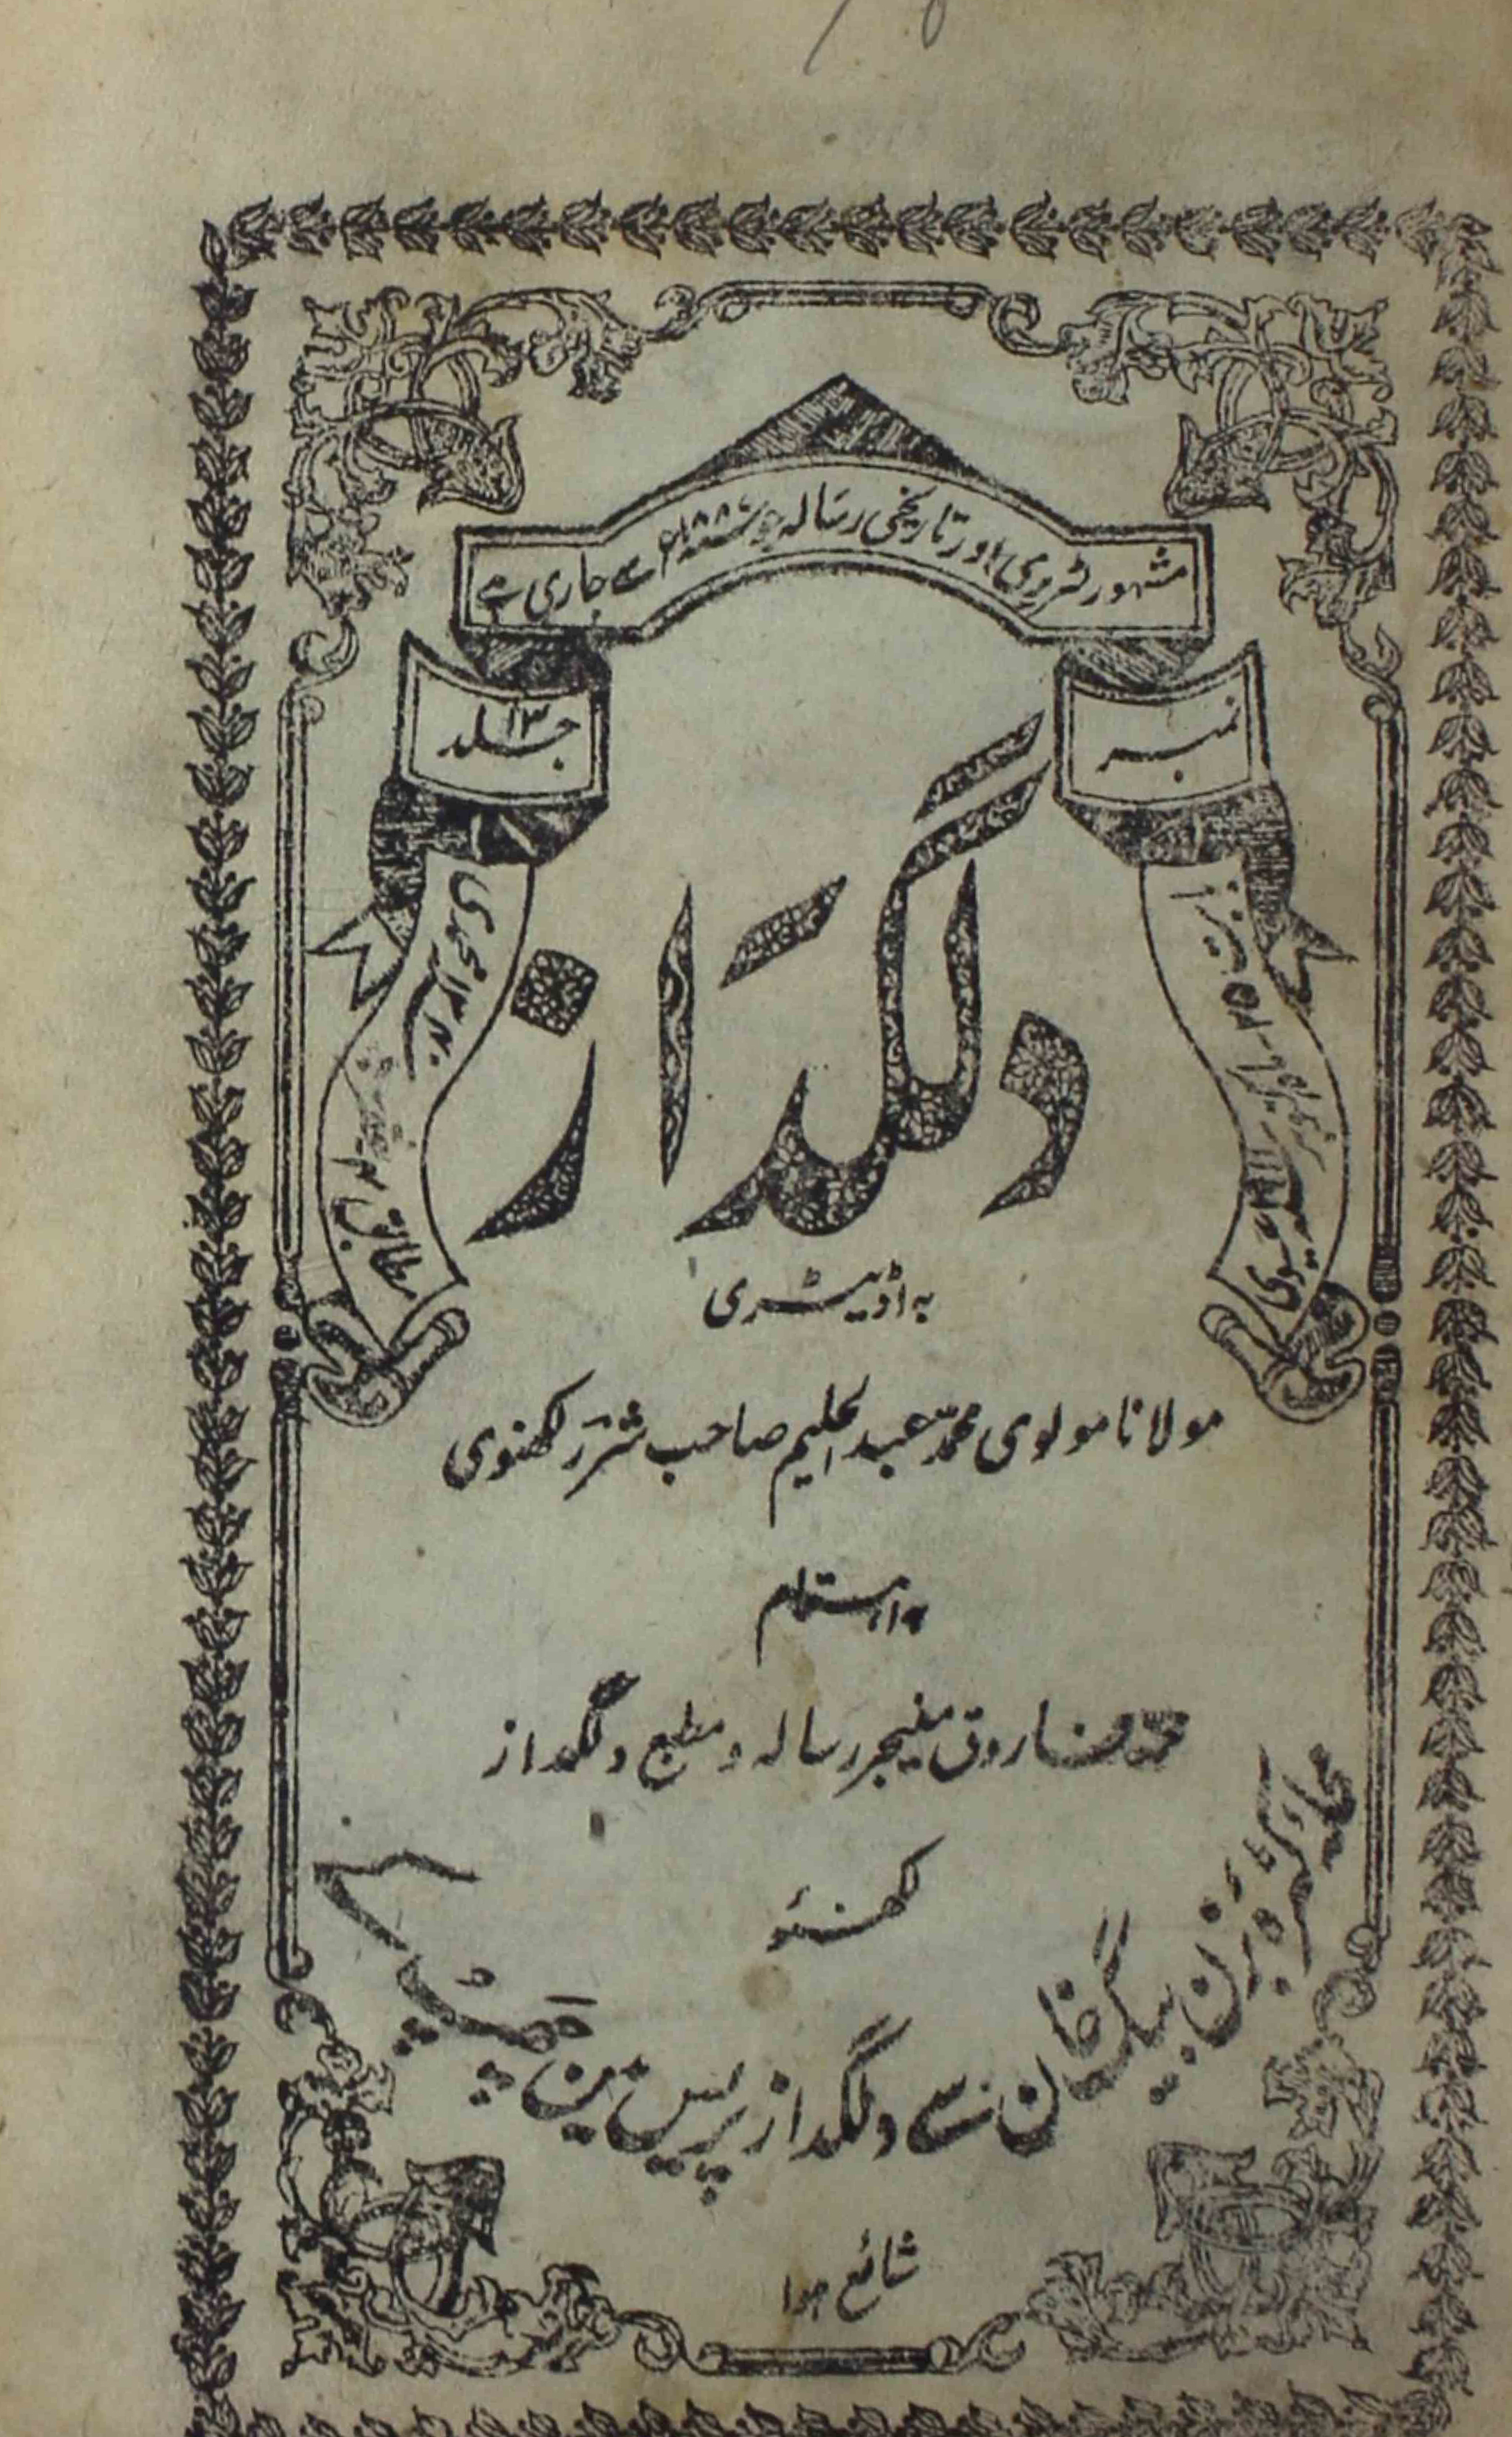 مشہور لٹریری اور تاریخی رسالہ جو سنہ ۱۸۸۷ء سے جاری ہے
نمبر
جلد ۱۳
عیسوی
مطابق
ہجری
دلگداز
بہ اڈیٹری
مولانا مولوی محمد عبدالحلیم صاحب شرر لکھنوی
بہ اہتمام
محمد فاروق منیجر رسالہ و مطبع دلگداز
لکھنؤ
محلہ کٹرہ بزن بیگ خان سے دلگداز پریس مین چھپ کے
شائع ہوا